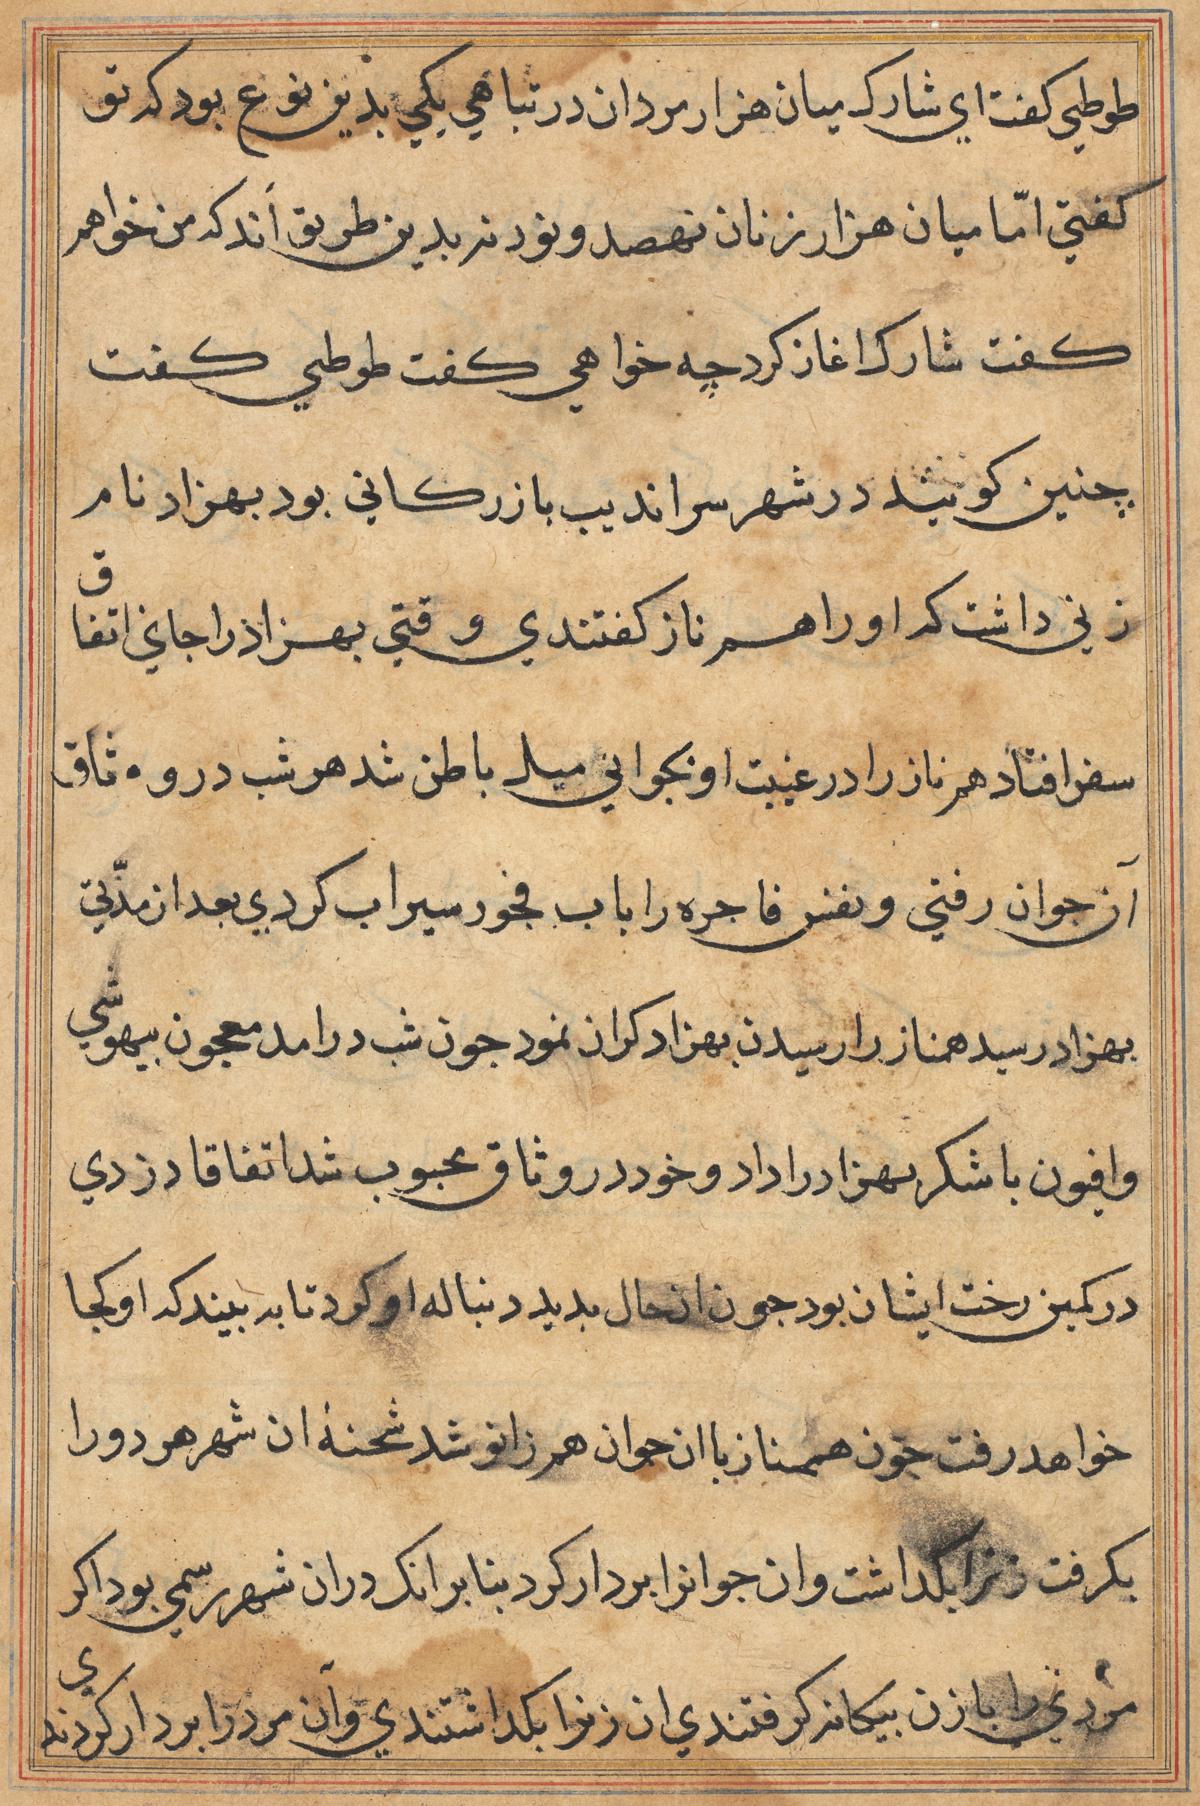 طوطي كفت اي شارك ميان هزار مردان در تباهي يكي بدين نوع بود كه تو
كفتي امّا ميان هزار زنان نهصد و نود نه بدين طريق اند كه من خواهم
كفت شارك اغاز كرد چه خواهي كفت طوطي كفت
چنين كويند در شهر سرانديب بازركاني بود بهزاد نام
زني داشت كه او را هم ناز كفتندي وقتي بهزاد را جاي اتفاق
سفر افتاد هم ناز را در غيبت او بجواني ميل باطن شد هر شب در وثاق
آن جوان رفتي و نفس فاجره را باب فجور سيراب كردي بعد از مدّتي
بهزاد رسيد همناز را رسيدن بهزاد كران نمود جون شب درامد معجون بيهوشي
وافيون باشكر بهزاد را داد و خود در وثاق محبوب شد اتفاقا دزدي
در كمين رخت ايشان بود جون ان حال بديد دنباله او كرد تا به بيند كه او كجا
خواهد رفت چون همناز با ان جوان هم زانو شد شحنۀ ان شهر هر دو را
بكرفت زنرا بكداشت وان جوانرا بر دار كرد بنابر انك دران شهر رسمي بود اكر
مردي را با زن بيكانه كرفتندي ان زنرا بكداشتندي وآن مرد را بر دار كردندي